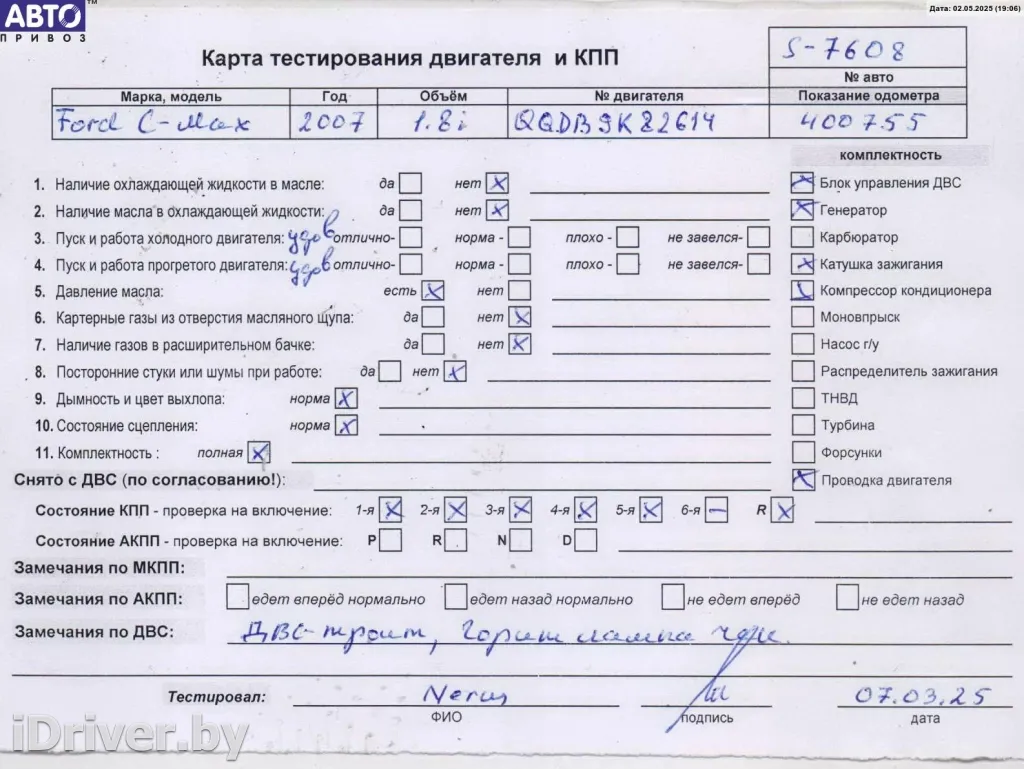 АВТО™
ПРИВОЗ
Дата: 02.05.2025 (19:06)
Карта тестирования двигателя и КПП
S-7608
№ авто
Марка, модель Год Объём № двигателя Показание одометра
Ford C-Max 2007 1.8i QQDB9K82614 400755
комплектность
1. Наличие охлаждающей жидкости в масле: да нет Блок управления ДВС
2. Наличие масла в охлаждающей жидкости: да нет Генератор
3. Пуск и работа холодного двигателя: удов отлично- норма - плохо - не завелся- Карбюратор
4. Пуск и работа прогретого двигателя: удов отлично- норма - плохо - не завелся- Катушка зажигания
5. Давление масла: есть нет Компрессор кондиционера
6. Картерные газы из отверстия масляного щупа: да нет Моновпрыск
7. Наличие газов в расширительном бачке: да нет Насос г/у
8. Посторонние стуки или шумы при работе: да нет Распределитель зажигания
9. Дымность и цвет выхлопа: норма ТНВД
10. Состояние сцепления: норма Турбина
11. Комплектность : полная Форсунки
Снято с ДВС (по согласованию!): Проводка двигателя
Состояние КПП - проверка на включение: 1-я 2-я 3-я 4-я 5-я 6-я R
Состояние АКПП - проверка на включение: P R N D
Замечания по МКПП:
Замечания по АКПП: едет вперёд нормально едет назад нормально не едет вперёд не едет назад
Замечания по ДВС: ДВС-троит, Горит лампа
Тестировал: 07.03.25
ФИО подпись дата
iDriver.by